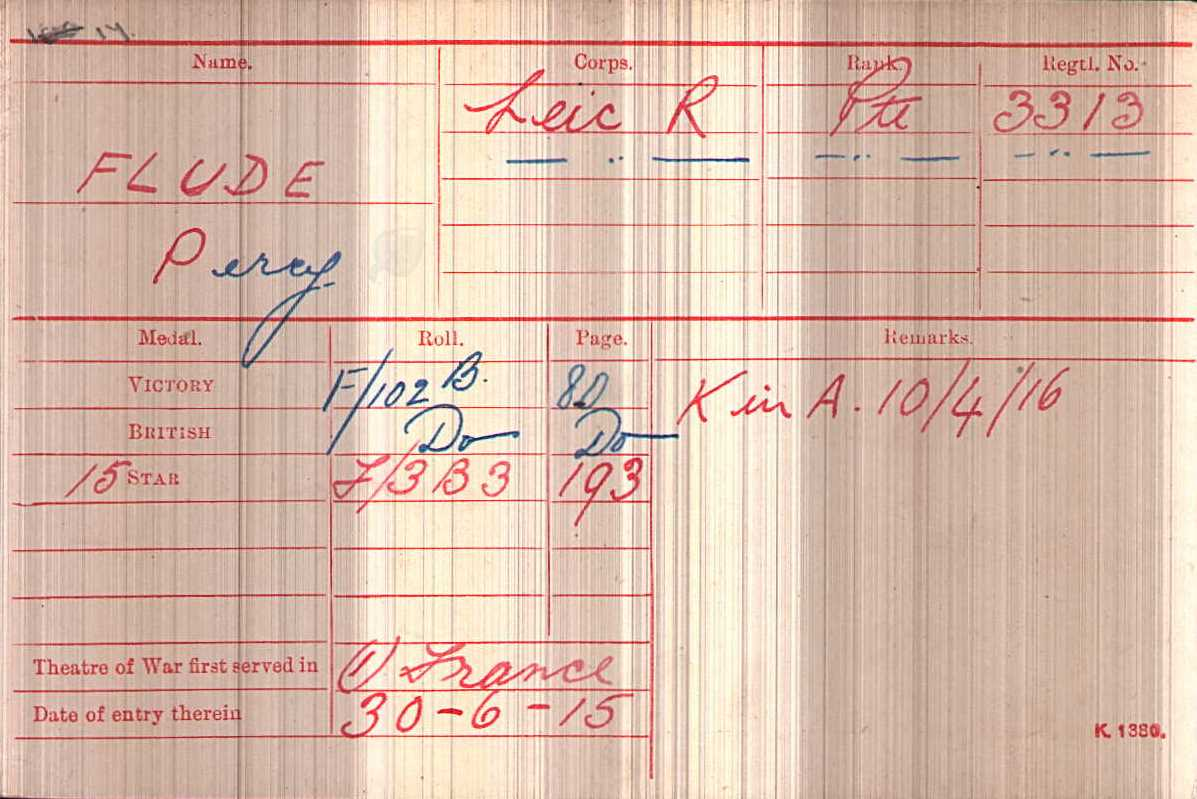 Name. Corps. Rank. Regtl. No.
Leic R Pte 3313
— " — — " — — " —
FLUDE
Percy
Medal. Roll. Page. Remarks.
VICTORY F/102 B. 80 K in A. 10/4/16
BRITISH Do Do
15 STAR F/3B3 193
Theatre of War first served in (1) France
Date of entry therein 30-6-15
K. 1380.